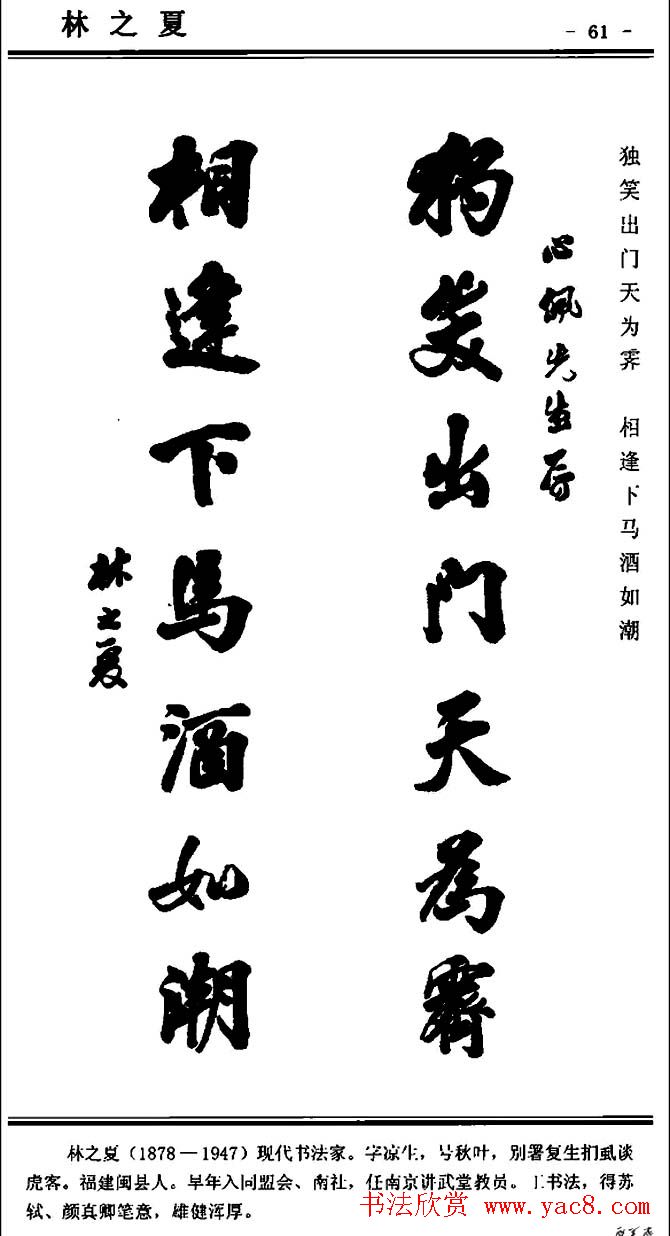 林之夏
- 61 -
独笑出门天为霁 相逢下马酒如潮
心佩先生属
獨笑出門天為霽
相逢下馬酒如潮
林之夏
林之夏（1878—1947）现代书法家。字凉生，号秋叶，别署复生扪虱谈
虎客。福建闽县人。早年入同盟会、南社，任南京讲武堂教员。工书法，得苏
轼、颜真卿笔意，雄健浑厚。
书法欣赏 www.yac8.com